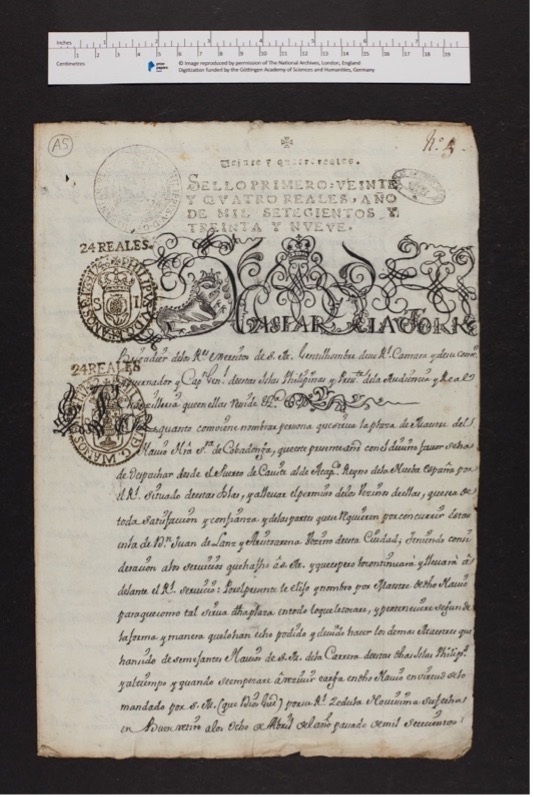 Inches
Centimetres
© Image reproduced by permission of The National Archives, London, England
Digitization funded by the Göttingen Academy of Sciences and Humanities, Germany
A5
Nº 3.
SELLO PRIMERO, VEINTE
Y QVATRO REALES, AÑO
DE MIL SETECIENTOS, Y
TREINTA Y NVEVE.
24 REALES
GASPAR DE LA TORRE
Brigadier delos Rˢ Exercitos de S. M. Gentilhombre de su Rˡ Camara y de su
Governador y Capⁿ Genˡ destas Islas Philipinas y Presᵗᵉ dela Audiencia y Real
24 REALES
Chanzilleria que en ellas reside &ª
Por quanto comviene nombrar persona que sirva la plaza de Maestre del
Navio Nrâ Sʳᵃ de Cobadonga, que este presente año con el divino favor seha
de despachar desde el Puerto de Cavite al de Acapᶜᵒ Reyno dela Nueba España por
el Rˡ situado destas Islas, y allevar el permiso delos Vezinos de ellas, que sea de
toda satisfacion y confianza y delas partes que se requieren por concurrir estas
enla de Dⁿ Juan de Vezino desta Ciudad; teniendo consi
deracion alos servicios que ha fho â S. M. y que espero lo continuará y llevará â
delante el Rˡ servicio: Por el presente le elijo y nombro por Maestre de dho Navio
para que como tal sirva dha plaza en todo lo que le tocare, y perteneciere segun de
la forma y manera que lo han echo podido y devido hacer los demas Maestres que
han sido de semejantes Navios de S. M. dela Carrera destas dhas Islas Philipˢ
y al tiempo y quando se empesare â recivir carga en dho Navio en virtud de lo
mandado por S. M. (que Dios gue) por su Rˡ Zedula Novissima su fecha
en Buen retiro alos Ocho de Abril del año pasado de mil setecientos